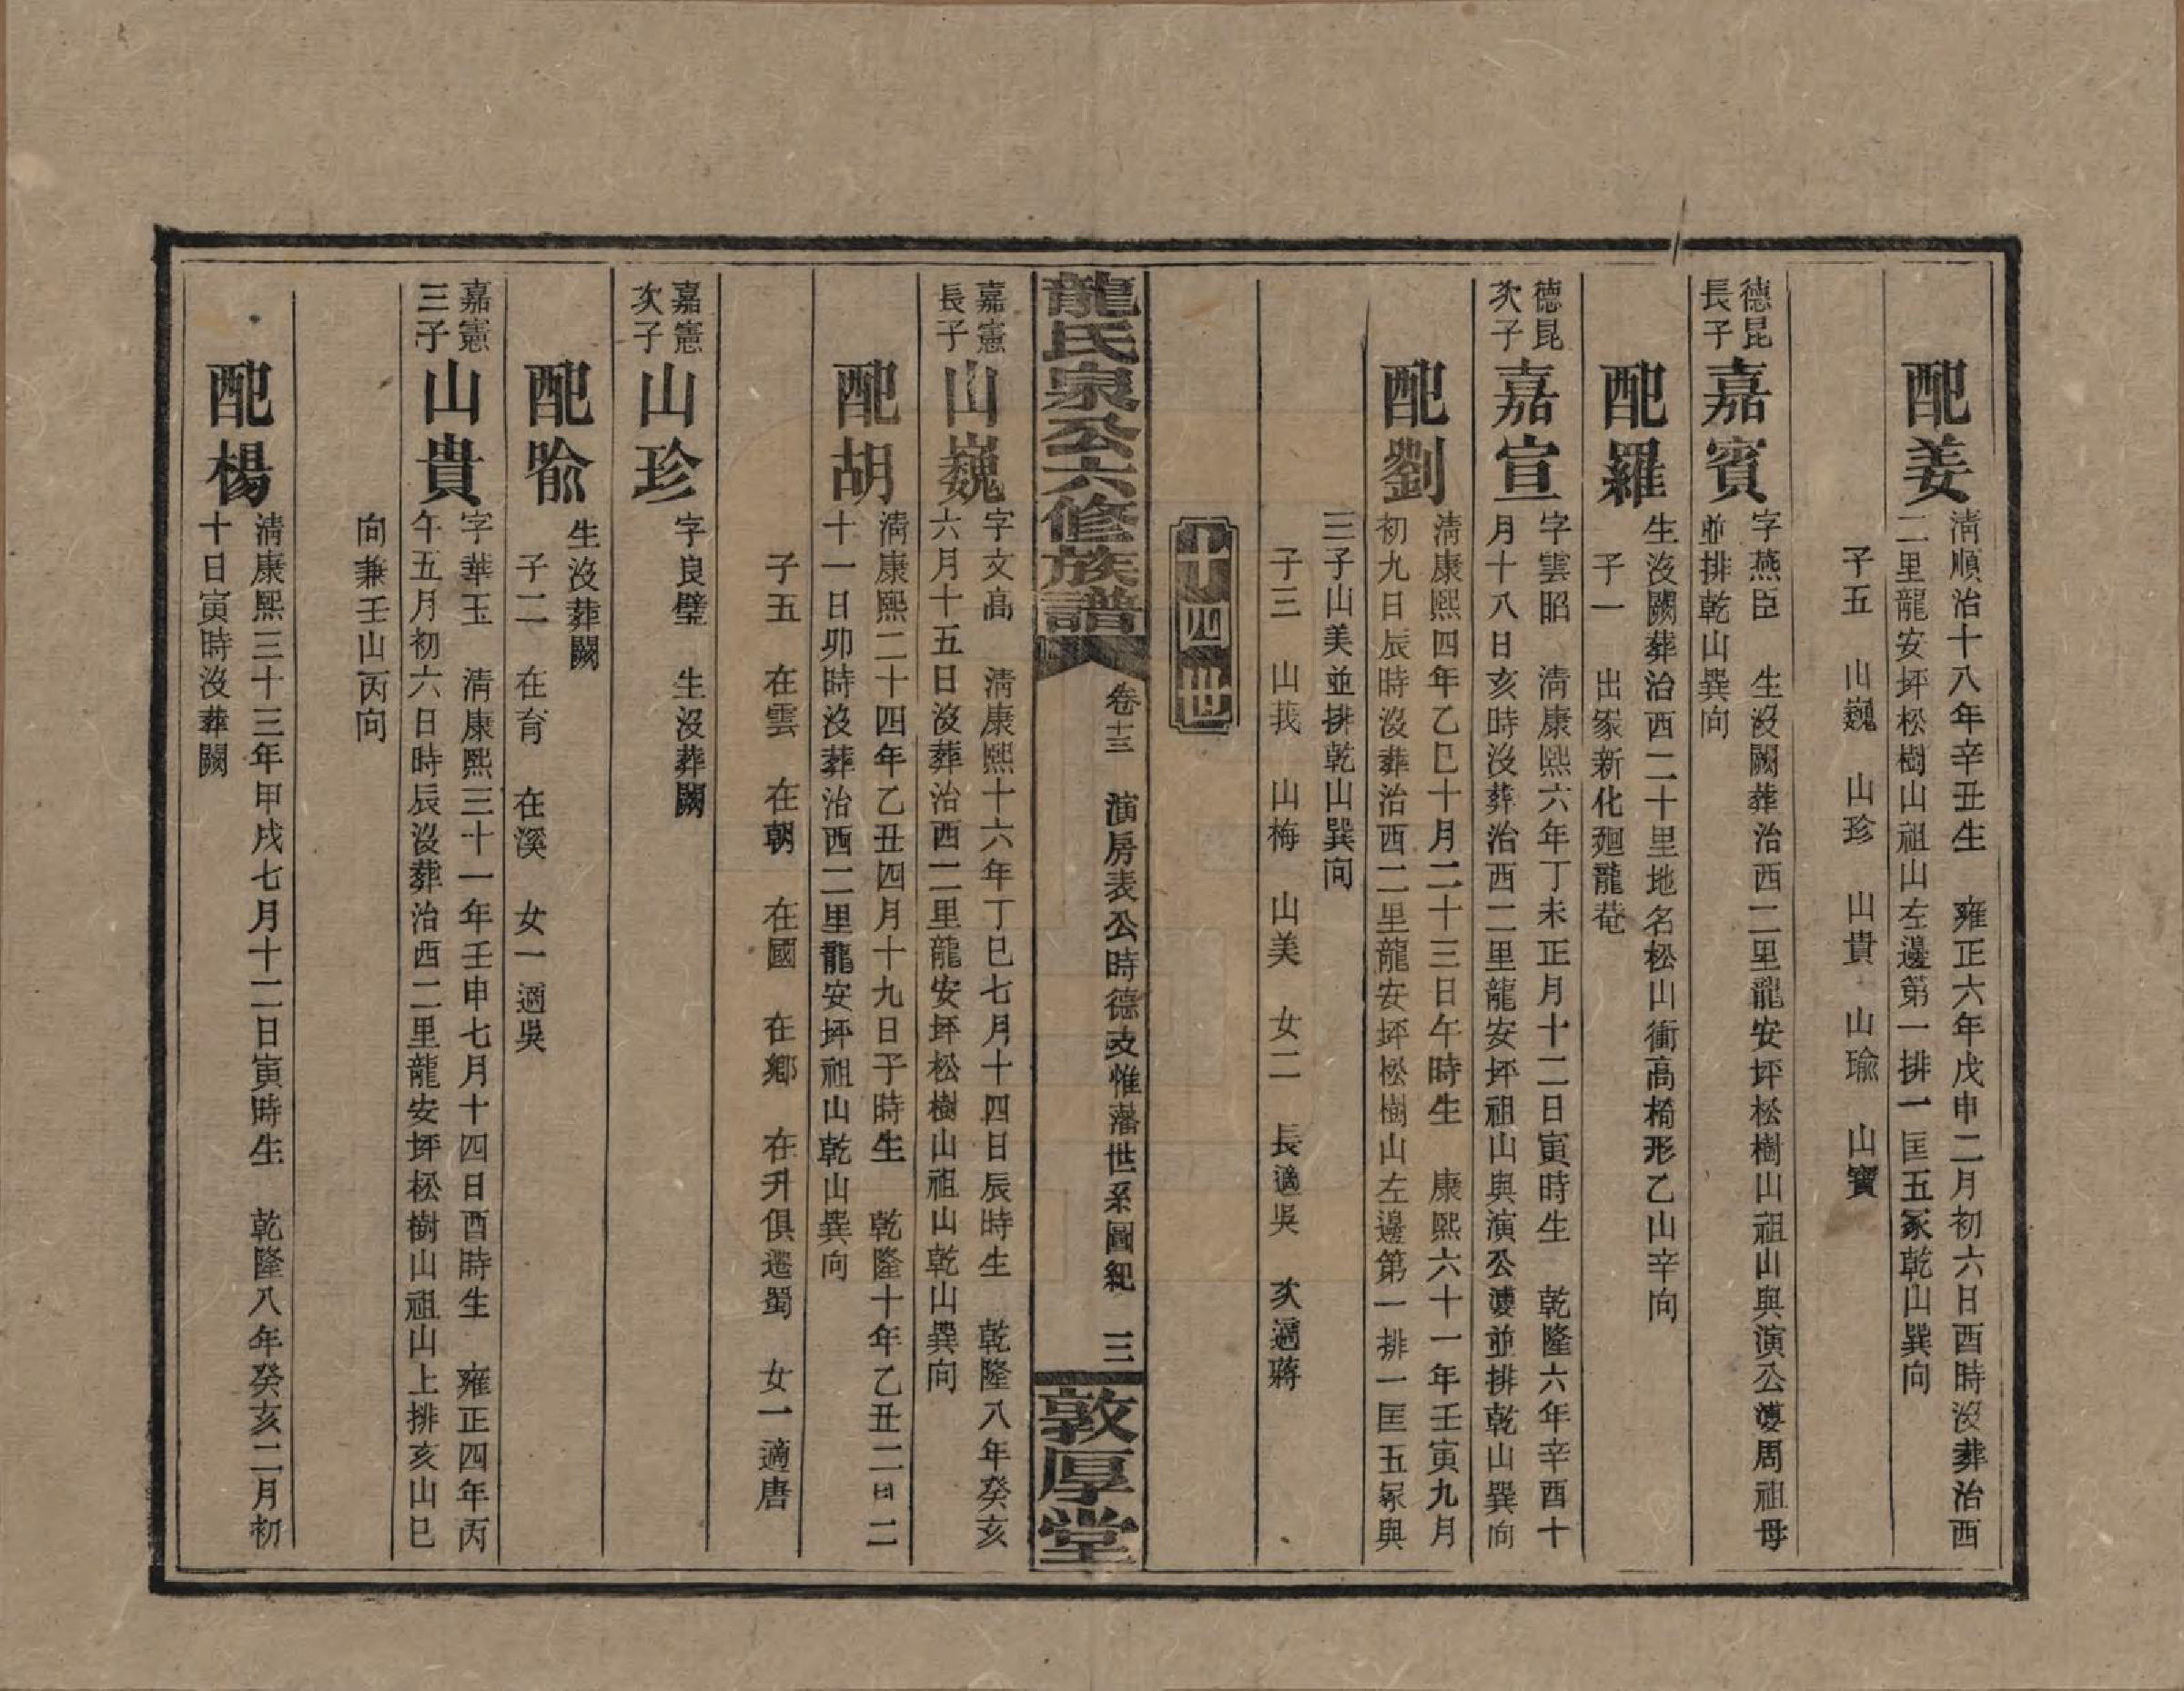 配姜
淸順治十八年辛丑生　雍正六年戊申二月初六日酉時沒葬治西
二里龍安坪松樹山祖山左邊第一排一匡五冢乾山巽向
子五　山巍　山珍　山貴　山瑜　山寶
德昆
長子
嘉賓
字燕臣　生沒闕葬治西二里龍安坪松樹山祖山與演公䕫周祖母
並排乾山巽向
配羅
生沒闕葬治西二十里地名松山衝高椅形乙山辛向
子一　出家新化廻龍菴
德昆
次子
嘉宣
字雲昭　淸康熙六年丁未正月十二日寅時生　乾隆六年辛酉十
月十八日亥時沒葬治西二里龍安坪祖山與演公䕫並排乾山巽向
配劉
淸康熙四年乙巳十月二十三日午時生　康熙六十一年壬寅九月
初九日辰時沒葬治西二里龍安坪松樹山左邊第一排一匡五冢與
三子山美並排乾山巽向
子三　山莪　山梅　山美　女二　長適吳　次適蔣
十四世
龍氏泉公六修族譜
卷十三　演房表公時德支惟藩世系圖紀　三
敦厚堂
嘉憲
長子
山巍
字文高　淸康熙十六年丁巳七月十四日辰時生　乾隆八年癸亥
六月十五日沒葬治西二里龍安坪松樹山祖山乾山巽向
配胡
淸康熙二十四年乙丑四月十九日子時生　乾隆十年乙丑二月二
十一日卯時沒葬治西二里龍安坪祖山乾山巽向
子五　在雲　在朝　在國　在鄉　在升俱遷蜀　女一適唐
嘉憲
次子
山珍
字良璧　生沒葬闕
配喩
生沒葬闕
子二　在育　在溪　女一適吳
嘉憲
三子
山貴
字華玉　淸康熙三十一年壬申七月十四日酉時生　雍正四年丙
午五月初六日時辰沒葬治西二里龍安坪松樹山祖山上排亥山巳
向兼壬山丙向
配楊
淸康熙三十三年甲戌七月十二日寅時生　乾隆八年癸亥二月初
十日寅時沒葬闕